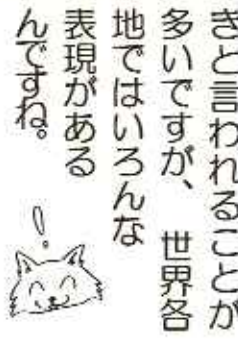 きと言われることが
多いですが、世界各
地ではいろんな
表現がある
んですね。